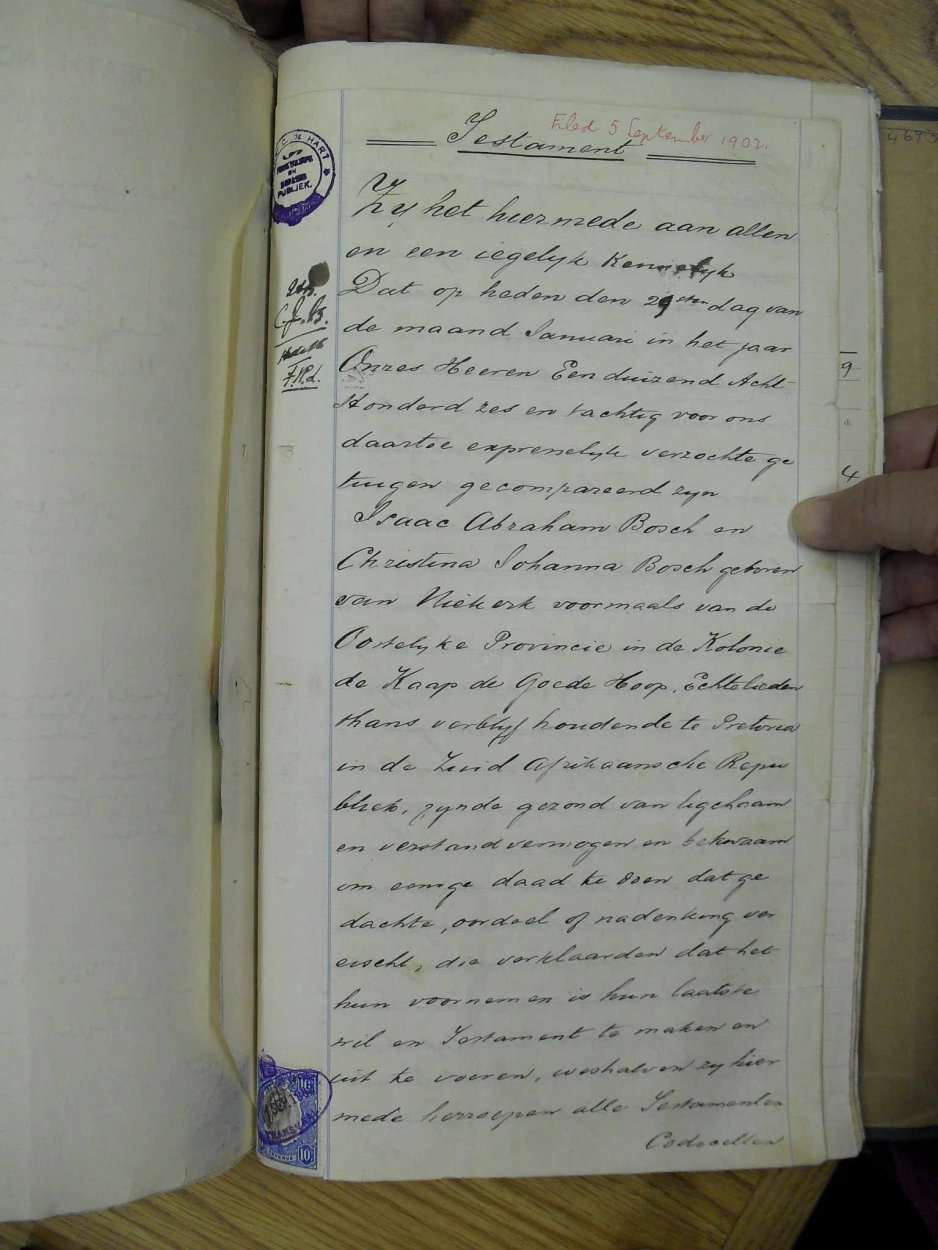 Filed 5 September 1902.
Testament
Zy het hiermede aan allen
en een iegelyk Kennelyk
Dat op heden den 29sten dag van
de maand Januari in het jaar
Onzes Heeren Een duizend Acht-
Honderd zes en tachtig voor ons
daartoe expresselyk verzochte ge
tuigen gecompareerd zyn
Isaac Abraham Bosch en
Christina Johanna Bosch geboren
van Niekerk voormaals van de
Oostelyke Provincie in de Kolonie
de Kaap de Goede Hoop, Echtelieden
thans verblyf houdende te Pretoria
in de Zuid Afrikaansche Repu
bliek, zynde gezond van ligchaam
en verstand vermogen en bekwaam
om eenige daad te doen dat ge
dachte, oordeel of nadenking ver
eischt, die verklaarden dat het
hun voornemen is hun laatste
wil en Testament te maken en
uit te voeren, weshalven zy hier
mede herroepen alle Testamenten
Codicellen
HART
PUBLIEK.
C.J.B.
9
4